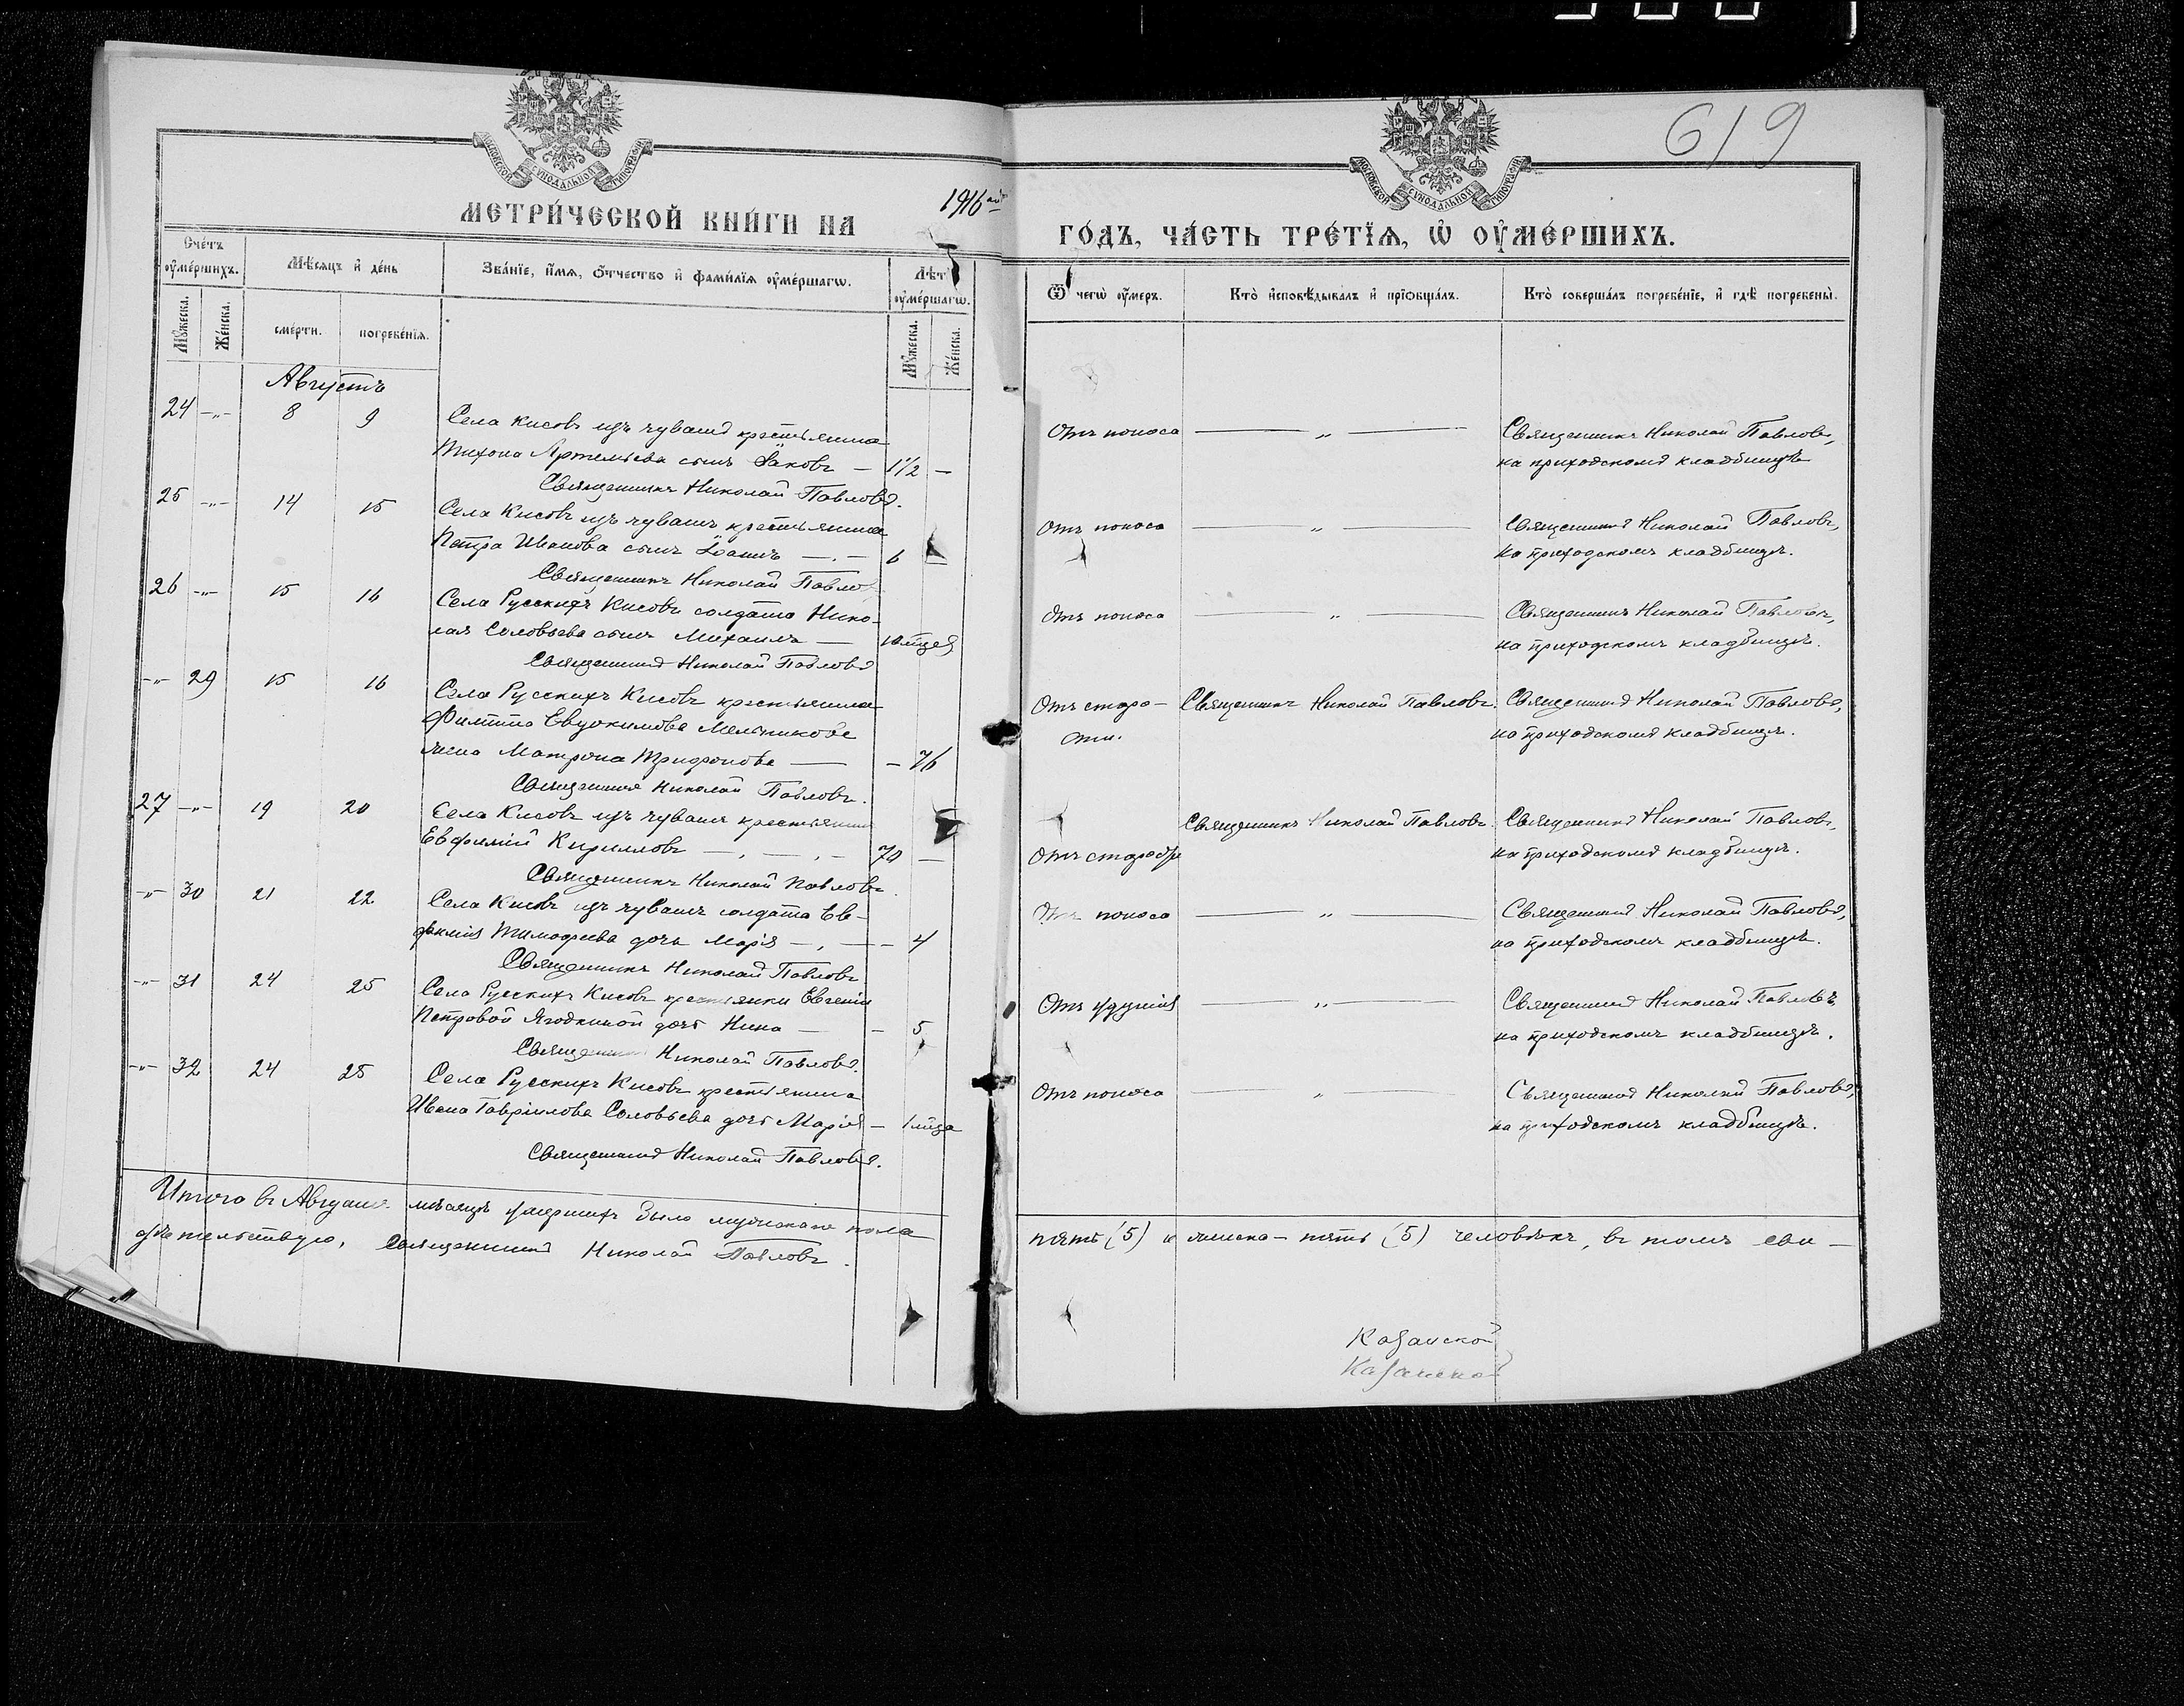 619
МОСКОВСКОЙ СѴНОДАЛЬНОЙ ТИПОГРАФІИ
МОСКОВСКОЙ СѴНОДАЛЬНОЙ ТИПОГРАФІИ
МЕТРИ́ЧЕСКОЙ КНИ́ГИ НА 1916
ГО́ДЪ, ЧА́СТЬ ТРЕ́ТЇѦ, Ѡ҆ ОУ҆МЕ́РШИХЪ.
Сче́тъ оу҆ме́ршихъ.
Мѣ́сяцъ и҆ де́нь
Зва́нїе, и҆́мѧ, ѻ҆́тчество и҆ фами́лїѧ оу҆ме́ршагѡ.
Лѣ́тъ оу҆ме́ршагѡ.
Ѿ чегѡ̀ оу҆́меръ.
Кто̀ и҆сповѣ́дывалъ и҆ прїѡбща́лъ.
Кто̀ соверша́лъ погребе́нїе, и҆ гдѣ̀ погребены̀.
Мꙋ́жеска.
Же́нска.
сме́рти.
погребе́нїѧ.
Мꙋ́жеска.
Же́нска.
Августъ
24 -"- 8 9 Села Кисовъ изъ чувашъ крестьянина
Тихона Артемьева сынъ Іаковъ — 1½ —
Священникъ Николай Павловъ.
Отъ поноса — " — Священникъ Николай Павловъ,
на приходскомъ кладбищѣ
25 -"- 14 15 Села Кисовъ изъ чувашъ крестьянина
Петра Иванова сынъ Іоаннъ — . — 6 —
Священникъ Николай Павло
Отъ поноса — " — Священникъ Николай Павловъ,
на приходскомъ кладбищѣ.
26 -"- 15 16 Села Русскихъ Кисовъ солдата Нико-
лая Соловьева сынъ Михаилъ — 10 мцей
Священникъ Николай Павловъ
Отъ поноса — " — Священникъ Николай Павловъ,
на приходскомъ кладбищѣ.
-"- 29 15 16 Села Русскихъ Кисовъ крестьянина
Филиппа Евдокимова Мельникова
жена Матрона Трифонова — - 76
Священникъ Николай Павловъ.
Отъ старо- Священникъ Николай Павловъ. Священникъ Николай Павловъ,
сти. на приходскомъ кладбищѣ.
27 -"- 19 20 Села Кисовъ изъ чувашъ крестьянинъ
Евфимій Кирилловъ — . — . — 70 —
Священникъ Николай Павловъ.
Священникъ Николай Павловъ. Священникъ Николай Павловъ,
Отъ старости на приходскомъ кладбищѣ.
-"- 30 21 22 Села Кисовъ изъ чувашъ солдата Ев-
фимія Тимофеева дочь Марія — . — - 4
Священникъ Николай Павловъ
Отъ поноса — " — Священникъ Николай Павловъ,
на приходскомъ кладбищѣ.
-"- 31 24 25 Села Русскихъ Кисовъ крестьянки Евгеніи
Петровой Ягодкиной дочь Нина — - 5
Священникъ Николай Павловъ.
Отъ удушія — " — Священникъ Николай Павловъ
на приходскомъ кладбищѣ.
-"- 32 24 25 Села Русскихъ Кисовъ крестьянина
Ивана Гаврілова Соловьева дочь Марія — 1 мца
Священникъ Николай Павловъ.
Отъ поноса — " — Священникъ Николай Павловъ,
на приходскомъ кладбищѣ.
Итого въ Августѣ мѣсяцѣ умершихъ было мужескаго пола
пять (5) и женска- пять (5) человѣкъ, въ томъ сви-
дѣтельствую, Священникъ Николай Павловъ.
Казанской
Казанской